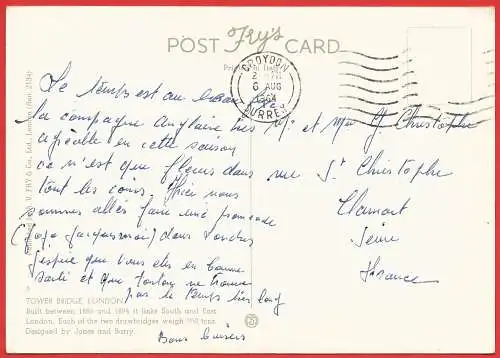 POST Fry's CARD
CROYDON
6 AUG
1964
SURREY
Le temps est au beau
la campagne Anglaise très
agréable en cette saison
ce n'est que fleurs dans
tout les coins. Hier nous
sommes allés faire une promenade
dans Londres
j'espère que vous etes en bonne
santé et que ne trouve
pas le temps très long
Bons baisers
Mr et Mme St Christophe
rue St Christophe
Clamart
Seine
France
TOWER BRIDGE, LONDON
Built between 1886 and 1894 it links South and East
London. Each of the two drawbridges weigh tons
Designed by Jones and Barry.